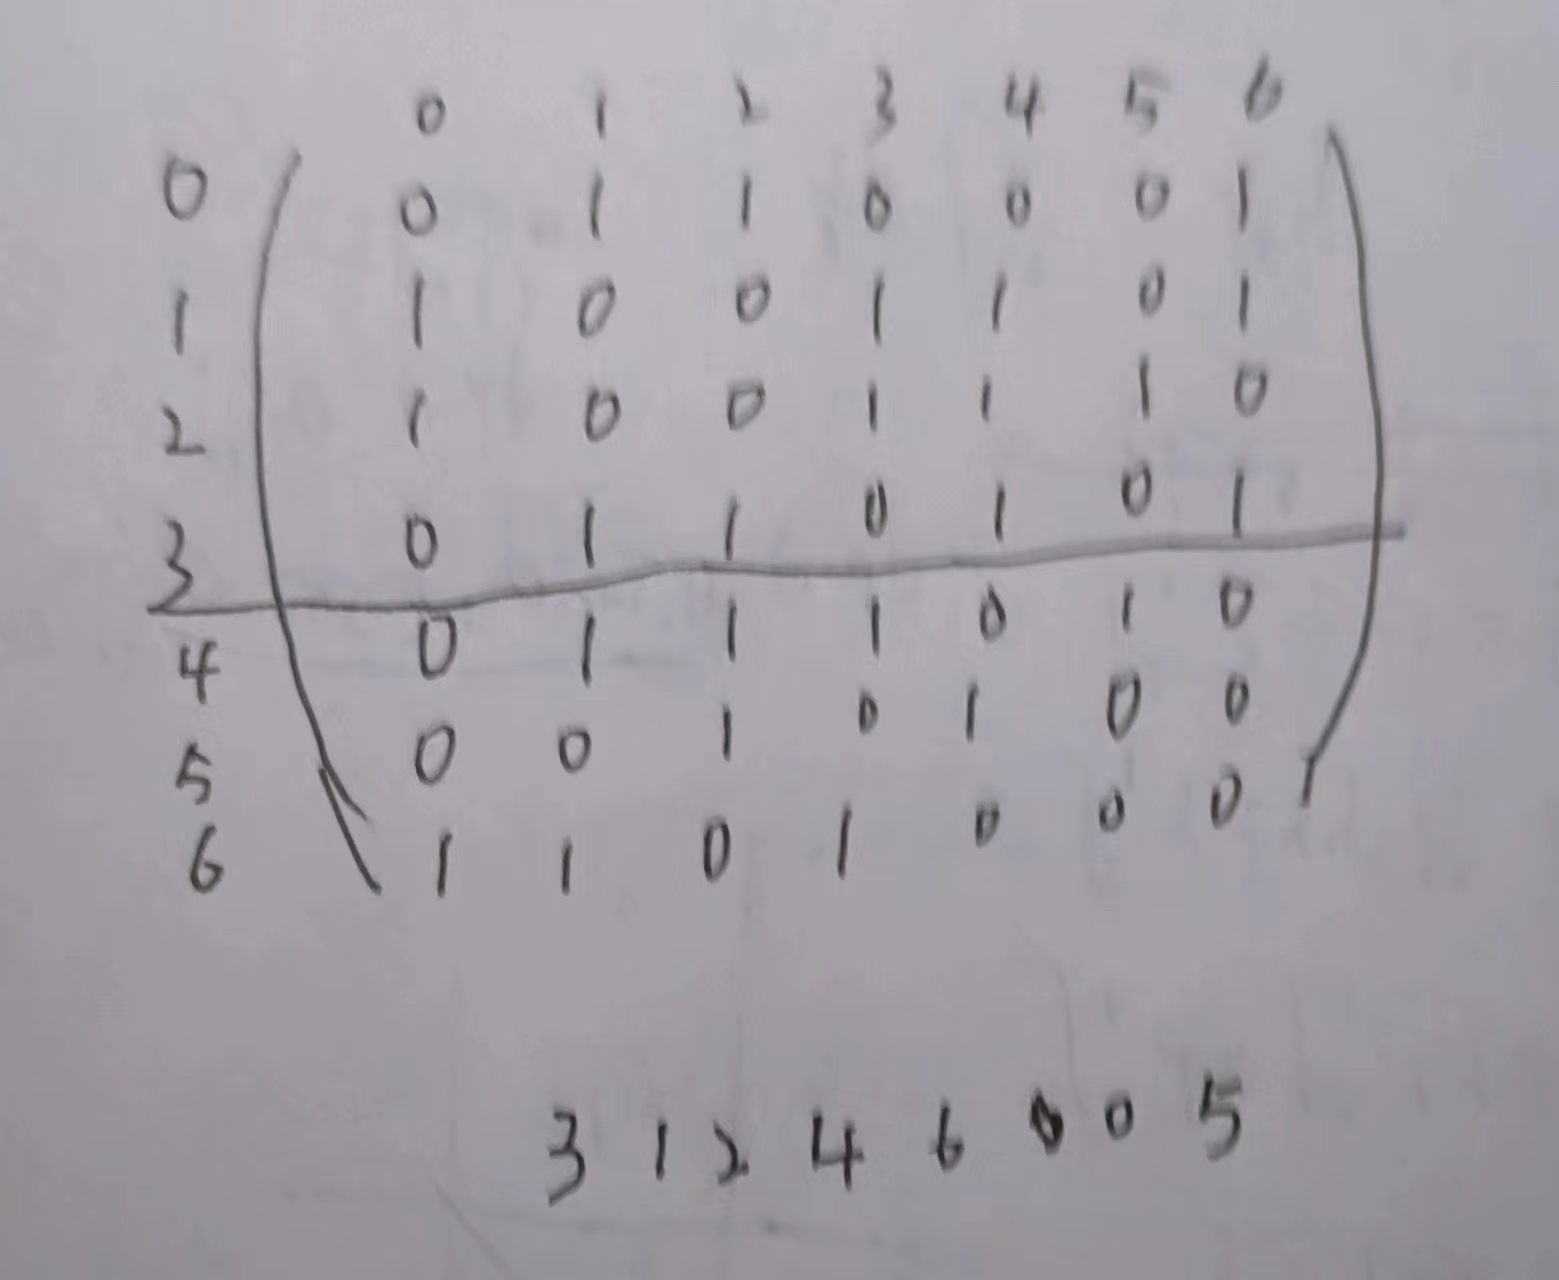 0 1 2 3 4 5 6
0 0 1 1 0 0 0 1
1 1 0 0 1 1 0 1
2 1 0 0 1 1 1 0
3 0 1 1 0 1 0 1
4 0 1 1 1 0 1 0
5 0 0 1 0 1 0 0
6 1 1 0 1 0 0 0
3 1 2 4 6 0 5